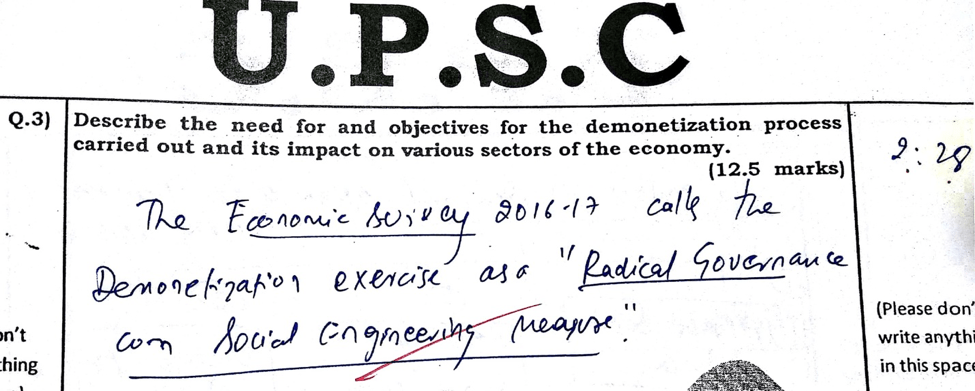 U.P.S.C
Q.3) Describe the need for and objectives for the demonetization process
carried out and its impact on various sectors of the economy.
(12.5 marks)
2:28
The Economic Survey 2016-17 calls the
Demonetization exercise as a "Radical Governance
cum Social Engineering Measure".
(Please don'
write anythi
in this space
on't
thing